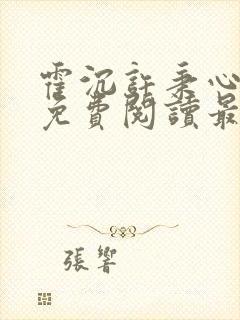 霍沉許秉心
免費閱讀最
張響